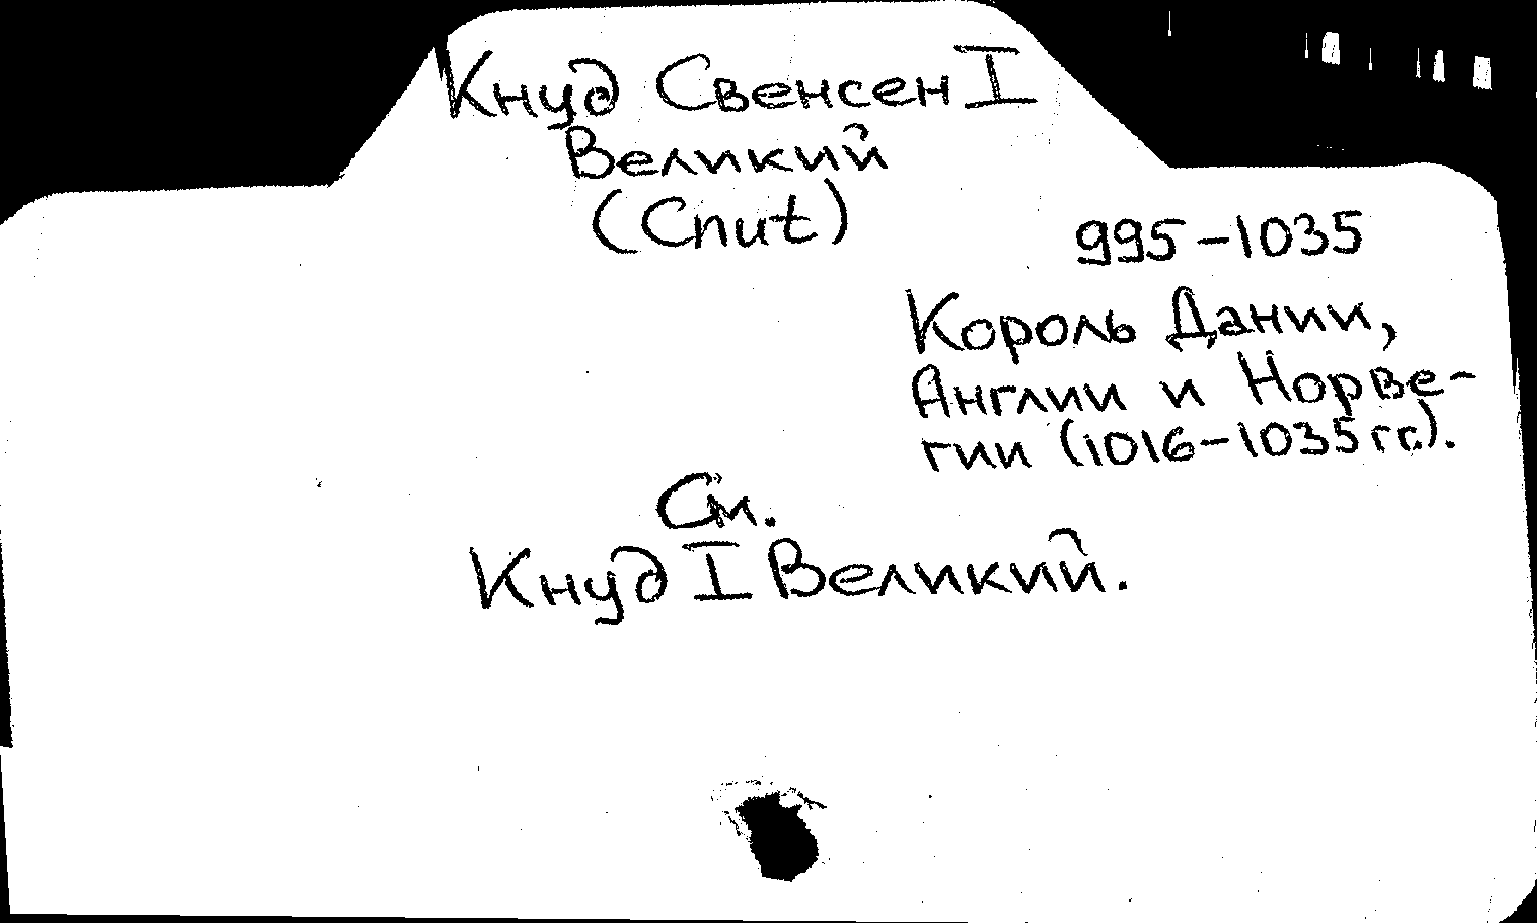 Кнуд Свенсен I
Великий
(Cnut)
995-1035
Король Дании,
Англии и Норве-
гии (1016-1035 гг.).
См.
Кнуд I Великий.